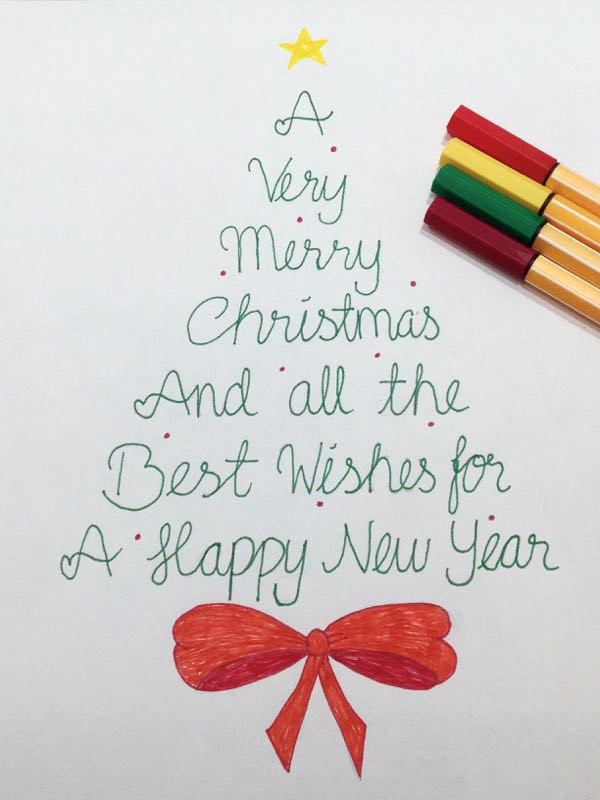 A
Very
Merry
Christmas
And all the
Best Wishes for
A Happy New Year